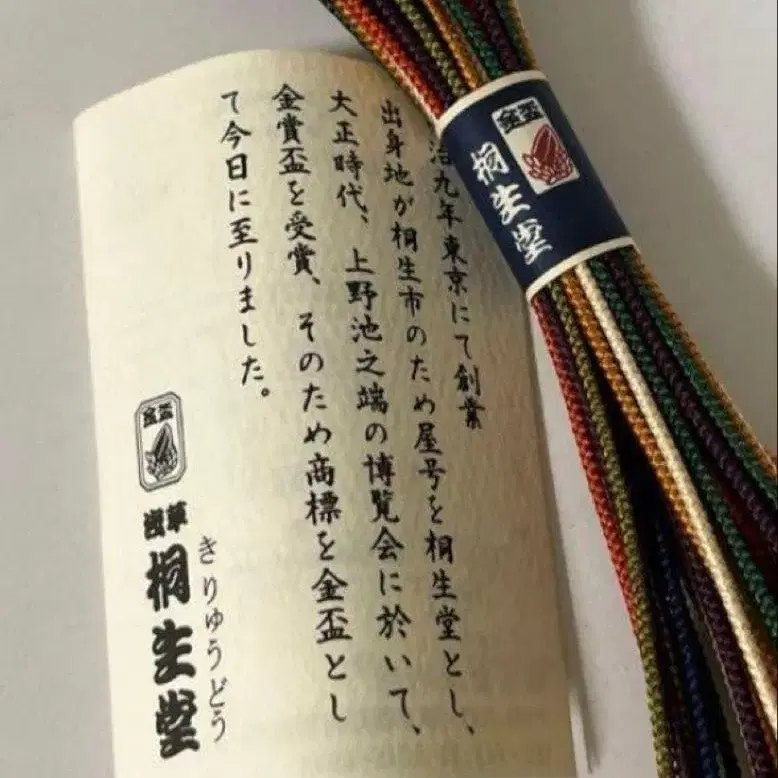 治九年東京にて創業
出身地が桐生市のため屋号を桐生堂とし、
大正時代、上野池之端の博覧会に於いて、
金賞盃を受賞、そのため商標を金盃とし
て今日に至りました。
金盃
浅草
桐生堂
きりゅうどう
金盃
桐生堂